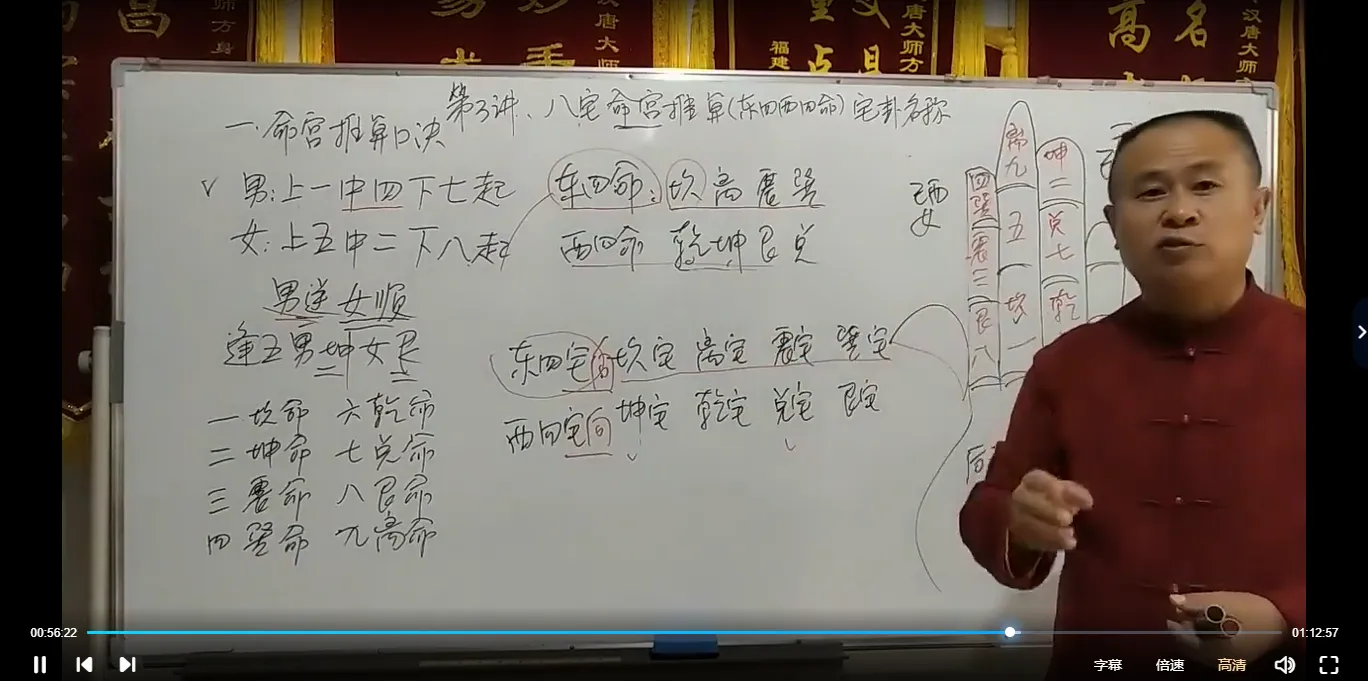 第3讲、八宅命宫推算(东四西四命)宅卦名称
一.命宫推算口决
男:上一中四下七起
女:上五中二下八起
男逆女顺
逢五男坤女艮
二
一坎命 六乾命
二坤命 七兑命
三震命 八艮命
四巽命 九离命
东四命:坎离震巽
西四命 乾坤艮兑
东四宅 坎宅 离宅 震宅 巽宅
西四宅向 坤宅 乾宅 兑宅 艮宅
女
四巽
震三
艮八
离九
五
坎一
坤二
兑七
乾
汉唐大师方
福建
高名
00:56:22
01:12:57
字幕 倍速 高清